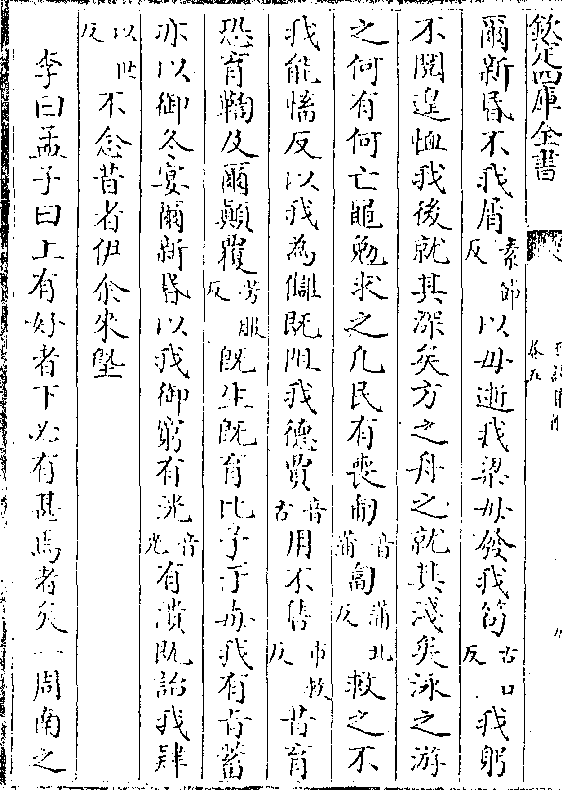 欽定四庫全書
爾新昏不我屑素節反以毋逝我梁毋發我笱古口反我躬
不閱遑恤我後就其深矣方之舟之就其淺矣泳之游
之何有何亡黽勉求之凡民有喪匍音蒲匐蒲北反救之不
我能慉反以我為讎既阻我德賈音古用不售市救反昔育
恐育鞫及爾顛覆芳服反既生既育比予于毒我有旨蓄
亦以御冬宴爾新昏以我御窮有洸音光有潰既詒我肄
以世反不念昔者伊余來塈
李曰孟子曰上有好者下必有甚焉者矣一周南之